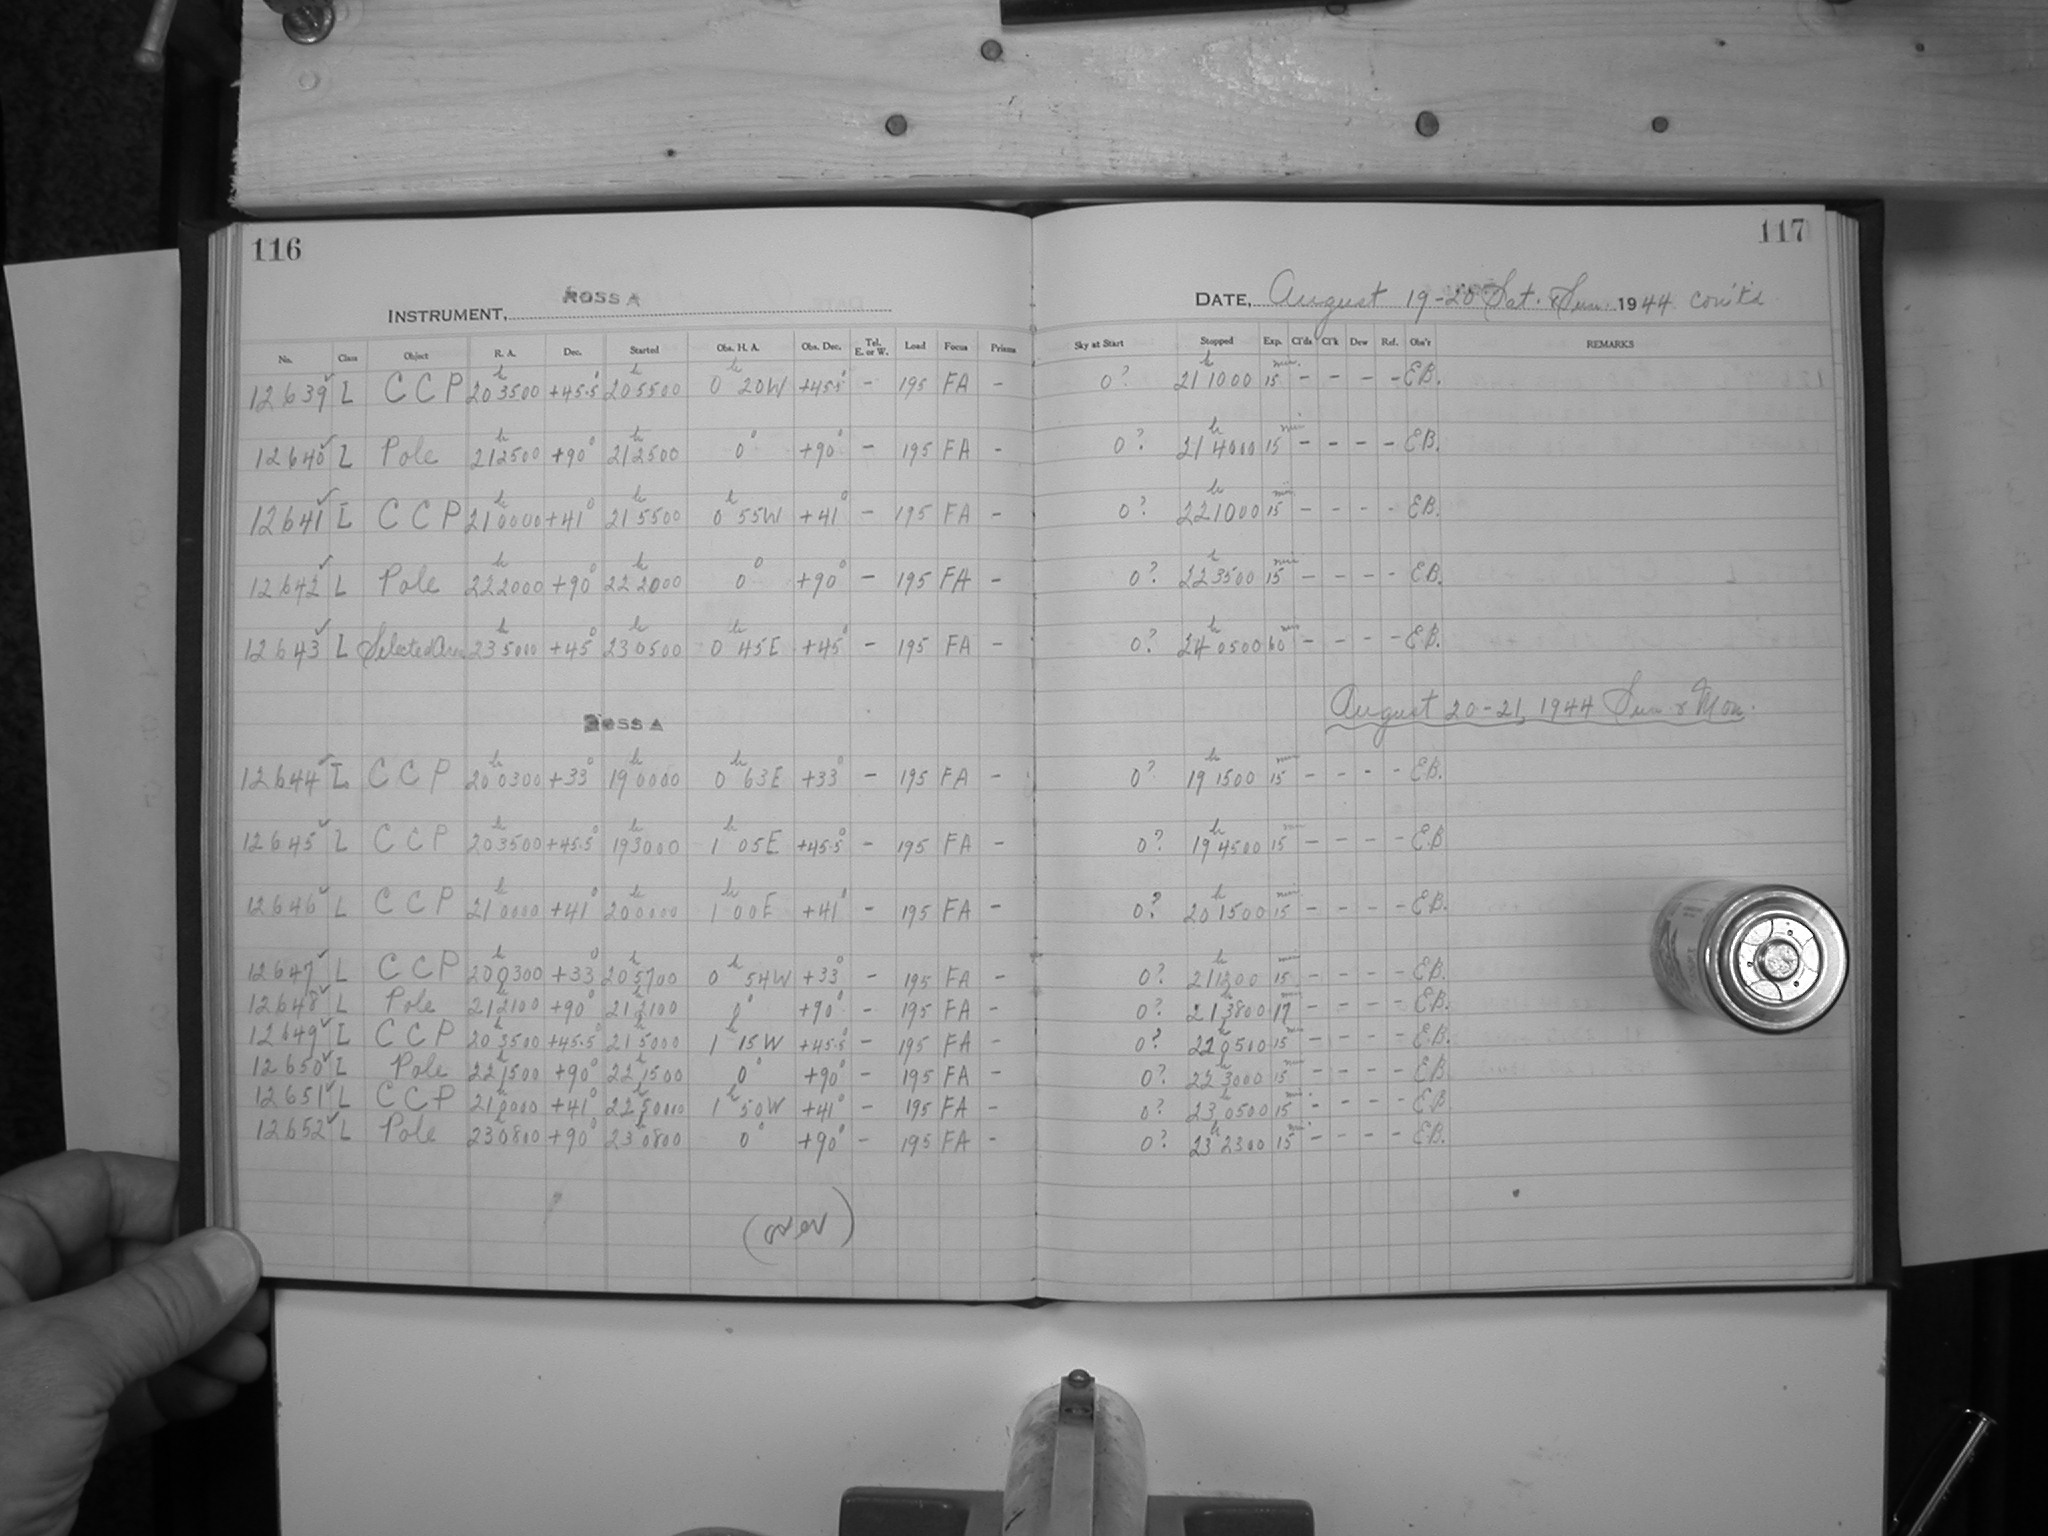 116
117
ROSS A
INSTRUMENT,
DATE, August 19-20 Sat. & Sun. 1944 con't'd
No. Class Object R. A. Dec. Started Obs. H. A. Obs. Dec. Tel. E. or W. Load Focus Prisms Sky at Start Stopped Exp. Cl'ds Cl'k Dew Ref. Obs'r REMARKS
12639✓ L C C P 20h 3500 +45.5° 20h 5500 0h 20W +45.5° - 195 FA - 0? 21h 1000 15min - - - - E.B.
12640✓ L Pole 21h 2500 +90° 21h 2500 0° +90° - 195 FA - 0? 21h 4000 15min - - - - E.B.
12641✓ L C C P 21h 0000 +41° 21h 5500 0h 55W +41° - 195 FA - 0? 22h 1000 15min - - - - E.B.
12642✓ L Pole 22h 2000 +90° 22h 2000 0° +90° - 195 FA - 0? 22h 3500 15min - - - - E.B.
12643✓ L Selected Area 23h 5000 +45° 23h 0500 0h 45E +45° - 195 FA - 0? 24h 0500 60min - - - - E.B.
ROSS A
August 20-21, 1944 Sun. & Mon.
12644✓ L C C P 20h 0300 +33° 19h 0000 0h 63E +33° - 195 FA - 0? 19h 1500 15min - - - - E.B.
12645✓ L C C P 20h 3500 +45.5° 19h 3000 1h 05E +45.5° - 195 FA - 0? 19h 4500 15min - - - - E.B
12646✓ L C C P 21h 0000 +41° 20h 0000 1h 00E +41° - 195 FA - 0? 20h 1500 15min - - - - E.B.
12647✓ L C C P 20h 0300 +33° 20h 5700 0h 54W +33° - 195 FA - 0? 21h 1200 15min - - - - E.B.
12648✓ L Pole 21h 2100 +90° 21h 2100 0° +90° - 195 FA - 0? 21h 3800 17min - - - - E.B.
12649✓ L C C P 20h 3500 +45.5° 21h 5000 1h 15W +45.5° - 195 FA - 0? 22h 0500 15min - - - - E.B.
12650✓ L Pole 22h 1500 +90° 22h 1500 0° +90° - 195 FA - 0? 22h 3000 15min - - - - E.B
12651✓ L C C P 21h 0000 +41° 22h 5000 1h 50W +41° - 195 FA - 0? 23h 0500 15min - - - - E.B
12652✓ L Pole 23h 0800 +90° 23h 0800 0° +90° - 195 FA - 0? 23h 2300 15min - - - - E.B.
(over)